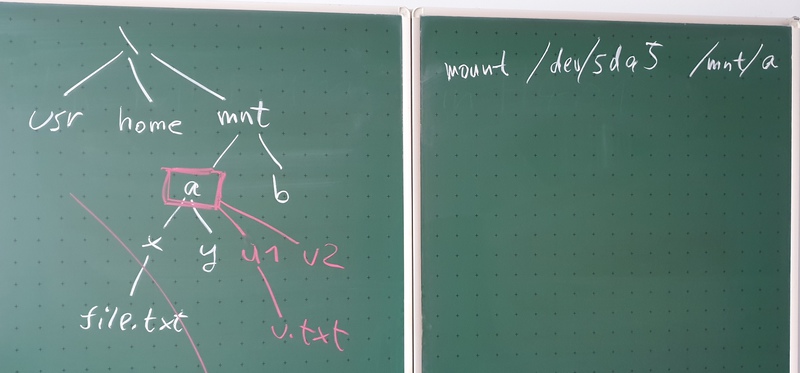 \
usr home mnt
a b
x y u1 u2
file.txt
u.txt
mount /dev/sda5 /mnt/a